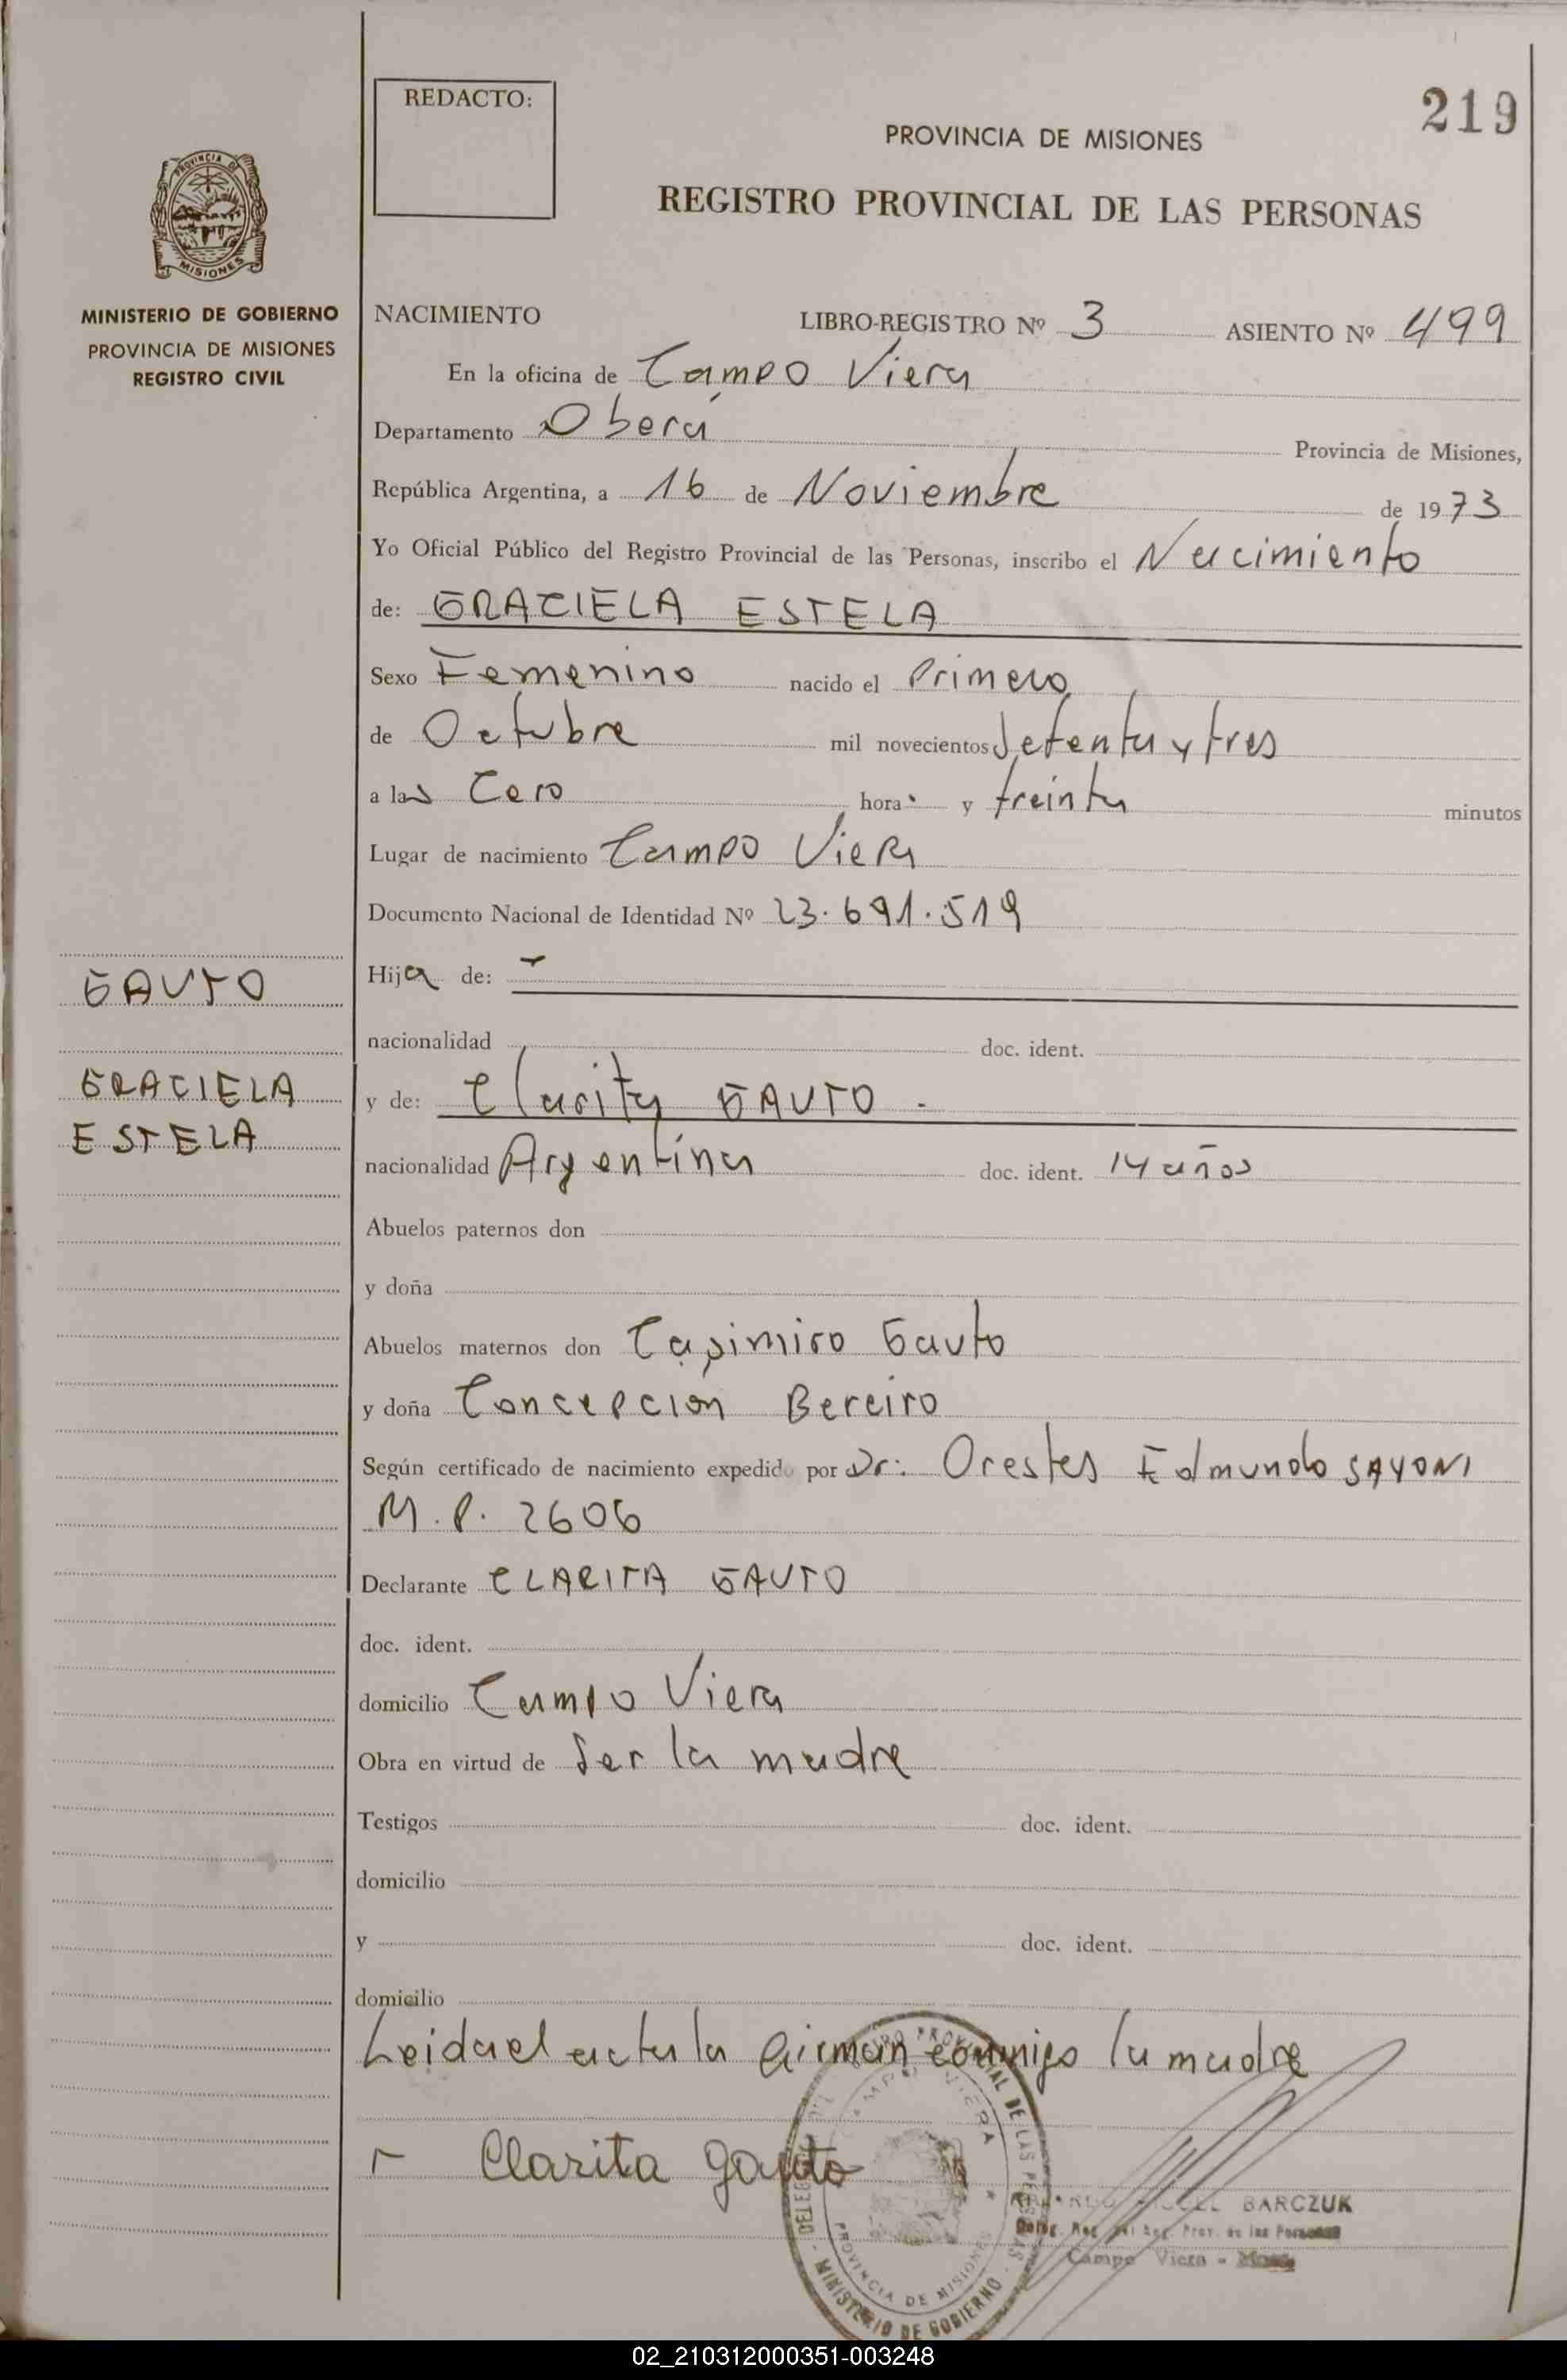 219
REDACTO:
PROVINCIA DE MISIONES
REGISTRO PROVINCIAL DE LAS PERSONAS
PROVINCIA DE
MISIONES
MINISTERIO DE GOBIERNO
PROVINCIA DE MISIONES
REGISTRO CIVIL
NACIMIENTO LIBRO-REGISTRO Nº 3 ASIENTO Nº 499
En la oficina de Campo Viera
Departamento Oberá Provincia de Misiones,
República Argentina, a 16 de Noviembre de 1973
Yo Oficial Público del Registro Provincial de las Personas, inscribo el Nacimiento
de: GRACIELA ESTELA
Sexo Femenino nacido el Primero
de Octubre mil novecientos setenta y tres
a las Cero horas y treinta minutos
Lugar de nacimiento Campo Viera
Documento Nacional de Identidad Nº 23.691.519
GAUTO
Hija de: -
nacionalidad doc. ident.
GRACIELA
ESTELA
y de: Clarita GAUTO -
nacionalidad Argentina doc. ident. 14 años
Abuelos paternos don
y doña
Abuelos maternos don Casimiro Gauto
y doña Concepción Bereiro
Según certificado de nacimiento expedido por Dr: Orestes Edmundo SAYONI
M.P. 2606
Declarante CLARITA GAUTO
doc. ident.
domicilio Campo Viera
Obra en virtud de Ser la madre
Testigos doc. ident.
domicilio
y doc. ident.
domicilio
Leida el acta la firman conmigo la madre
Clarita Gauto
BARCZUK
Deleg. Prov. de las Personas
Campo Viera -
REGISTRO PROVINCIAL DE LAS PERSONAS
CAMPO VIERA
PROVINCIA DE MISIONES
MINISTERIO DE GOBIERNO
02_210312000351-003248